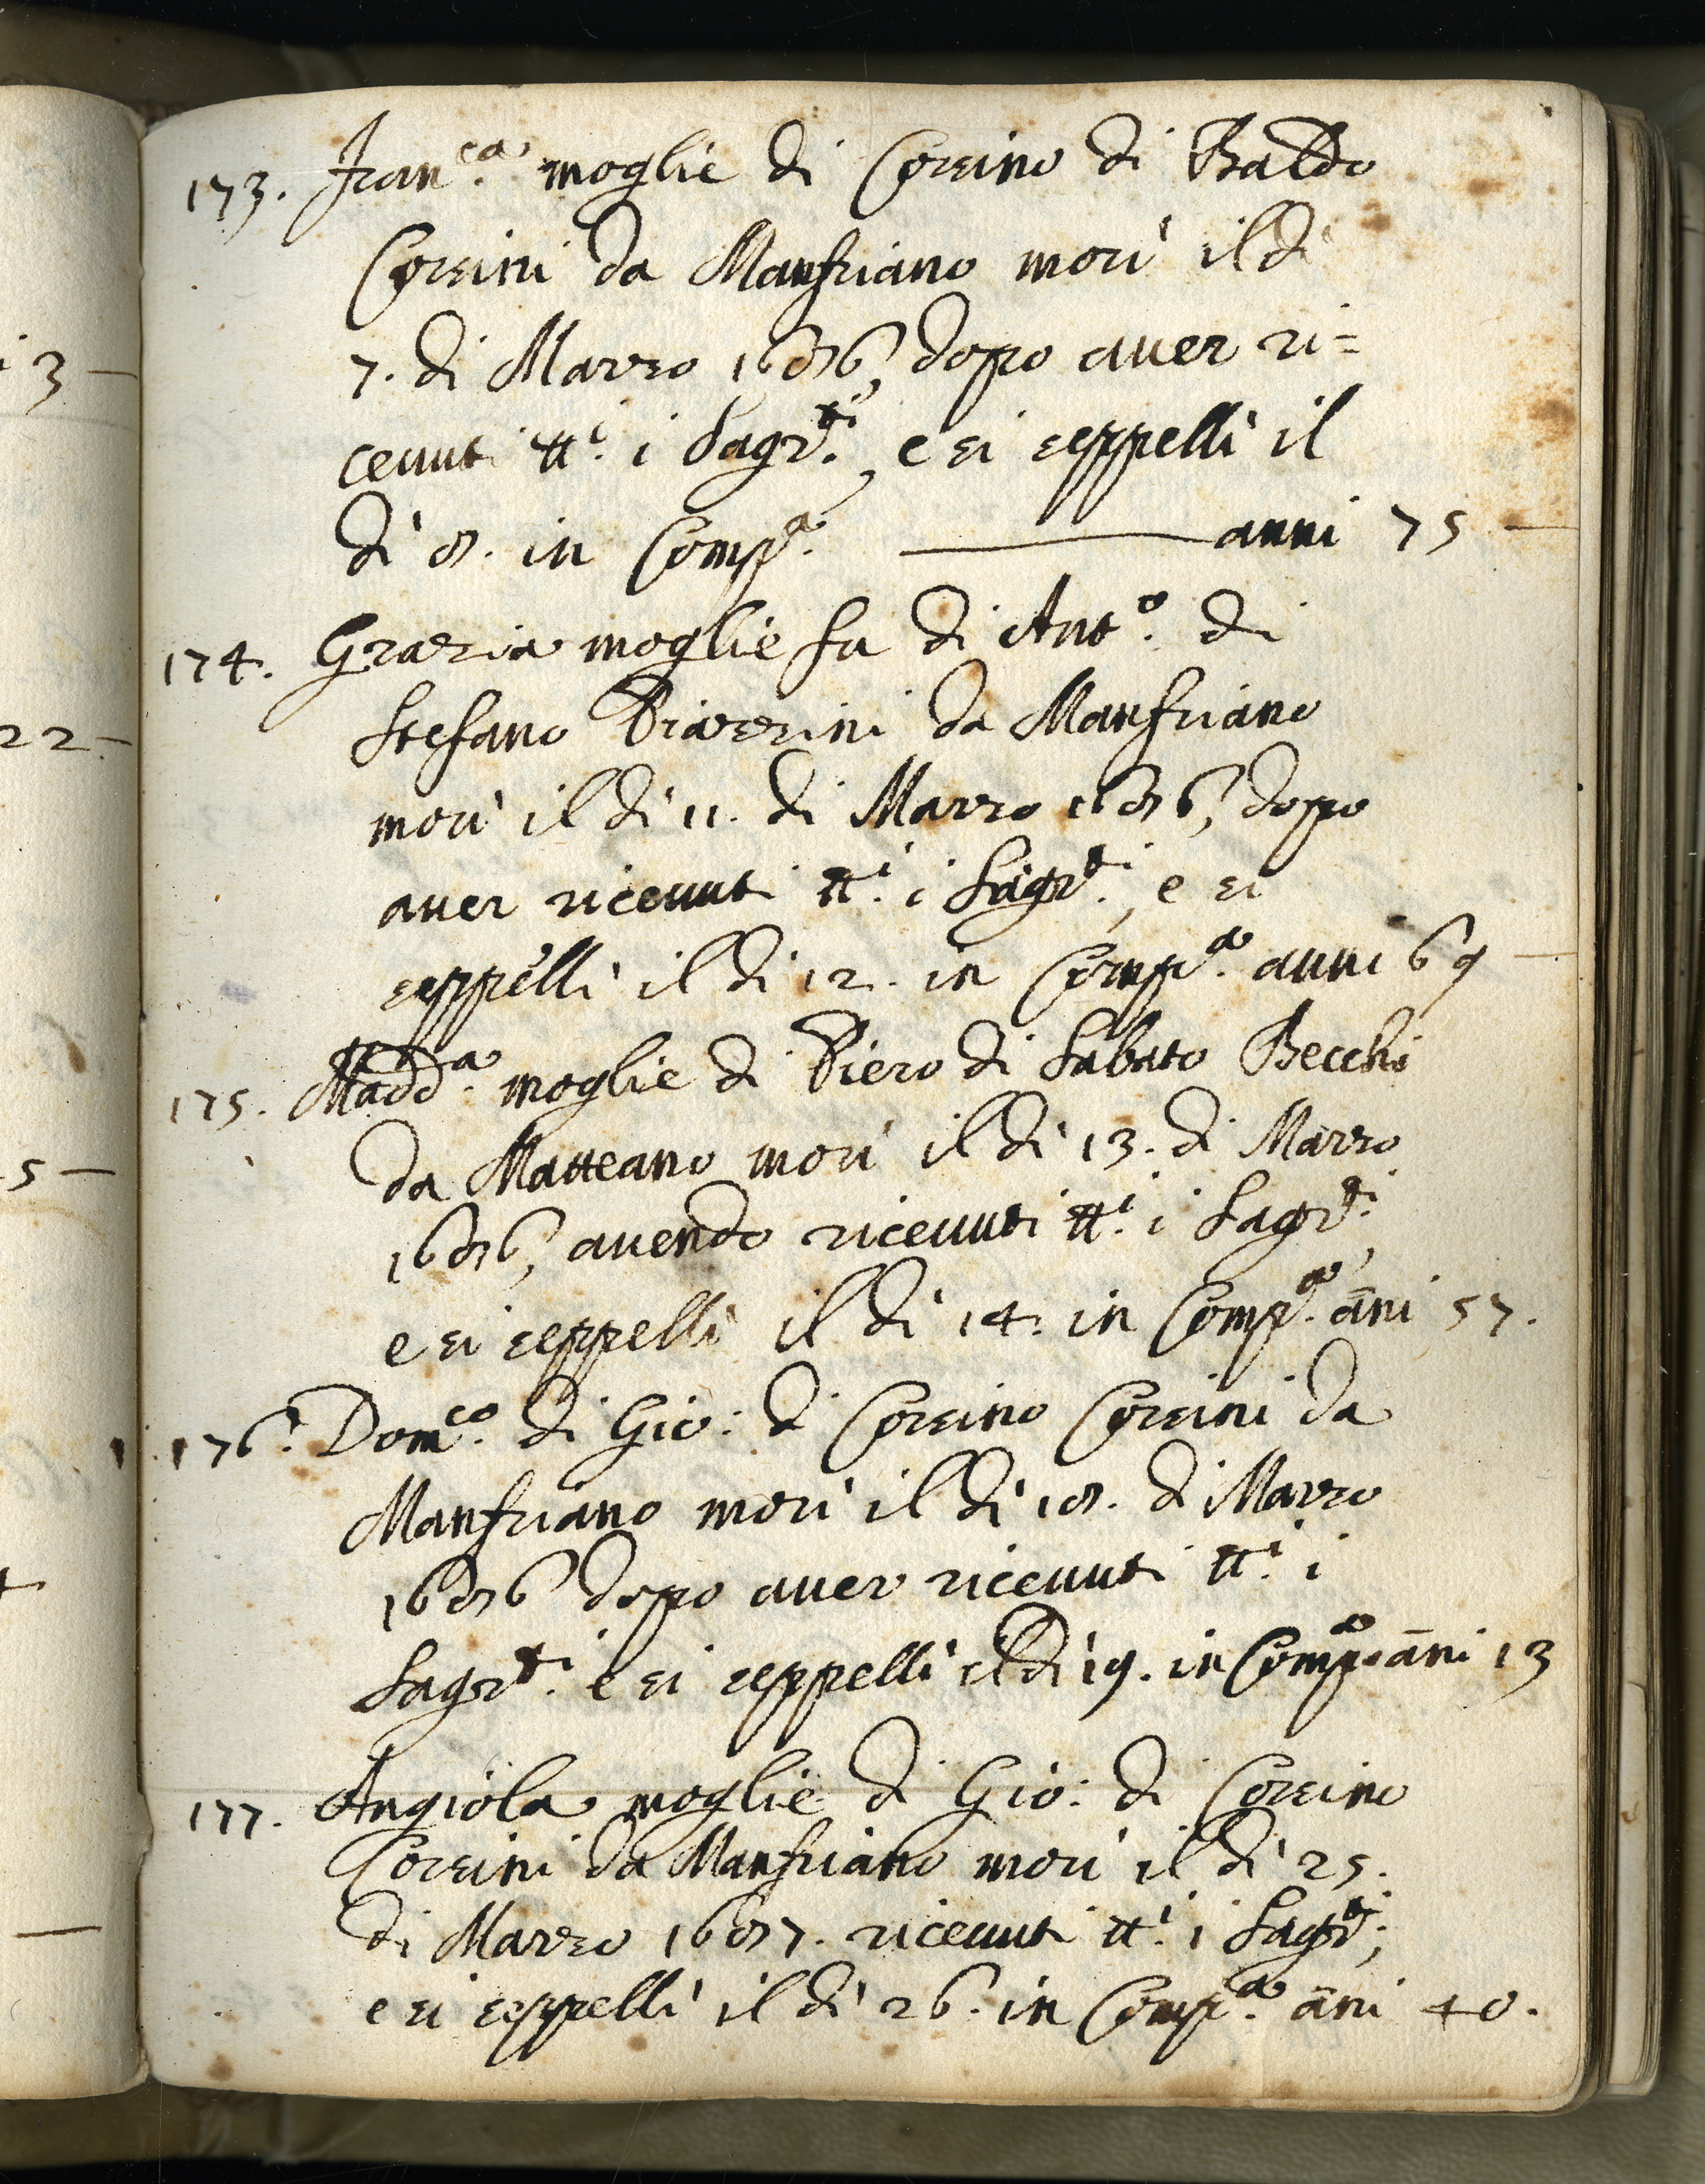 173. Fran.ca moglie di Corsino di Baldo
Corsini da Manfriano morì il dì
7. di Marzo 1686, dopo aver ri=
ceuuti tt.i i Sagr.ti, e si seppellì il
dì 8. in Comp.a anni 75
174. Grazia moglie fu di Ant.o di
Stefano Piazzini da Manfriano
morì il dì 11. di Marzo 1686, dopo
auer riceuuti tt.i i Sagr.ti, e si
seppellì il dì 12. in Comp.a anni 69
175. Madd.a moglie di Piero di Sabato Becchi
da Matteano morì il dì 13. di Marzo
1686, auendo riceuuti tt.i i Sagr.ti,
e si seppellì il dì 14. in Comp.a añi 57.
176. Dom.co di Gio: di Corsino Corsini da
Manfriano morì il dì 18. di Marzo
1686 dopo auer riceuuti tt.i i
Sagr.ti e si seppellì il dì 19. in Comp.a añi 13
177. Angiola moglie di Gio: di Corsino
Corsini da Manfriano morì il dì 25.
di Marzo 1687. riceuuti tt.i i Sagr.ti,
e si seppellì il dì 26. in Comp.a añi 40.
i 3
22
5